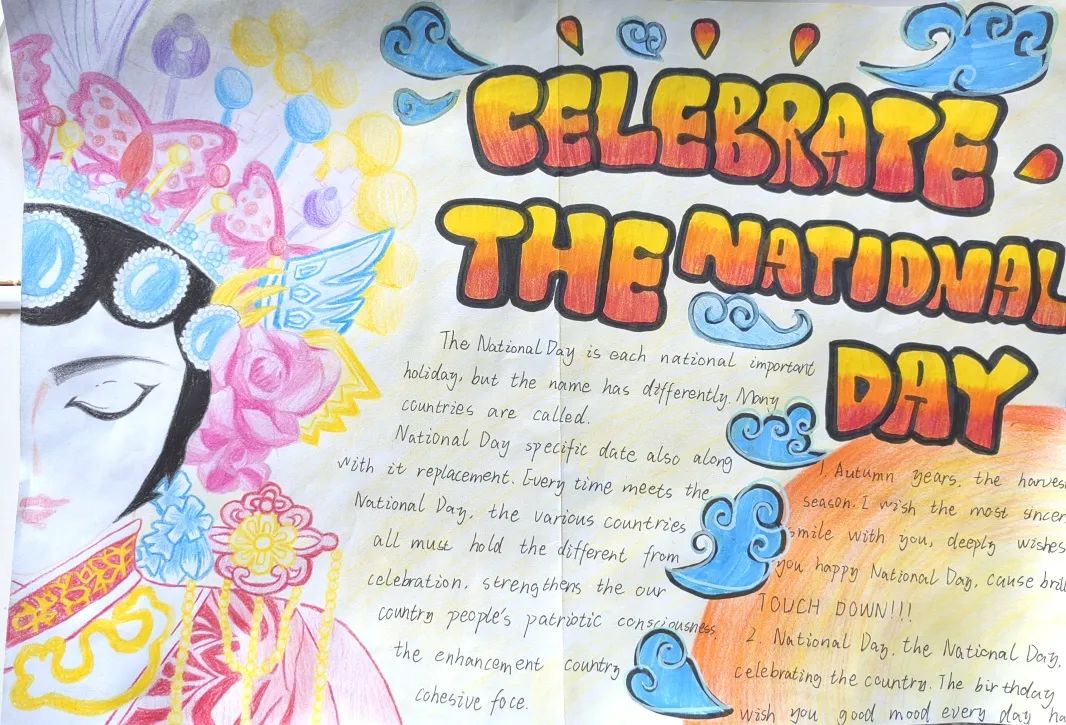 CELEBRATE
THE NATIONAL
DAY
The National Day is each national important
holiday, but the name has differently. Many
countries are called.
National Day specific date also along
with it replacement. Every time meets the
National Day, the various countries
all must hold the different from
celebration, strengthens the our
country people's patriotic consciousness,
the enhancement country
cohesive foce.
1. Autumn years, the harvest
season. I wish the most sincer
smile with you, deeply wishes
you happy National Day, cause bril
TOUCH DOWN!!!
2. National Day, the National Day,
celebrating the country. The birthday
wish you good mood every day ha